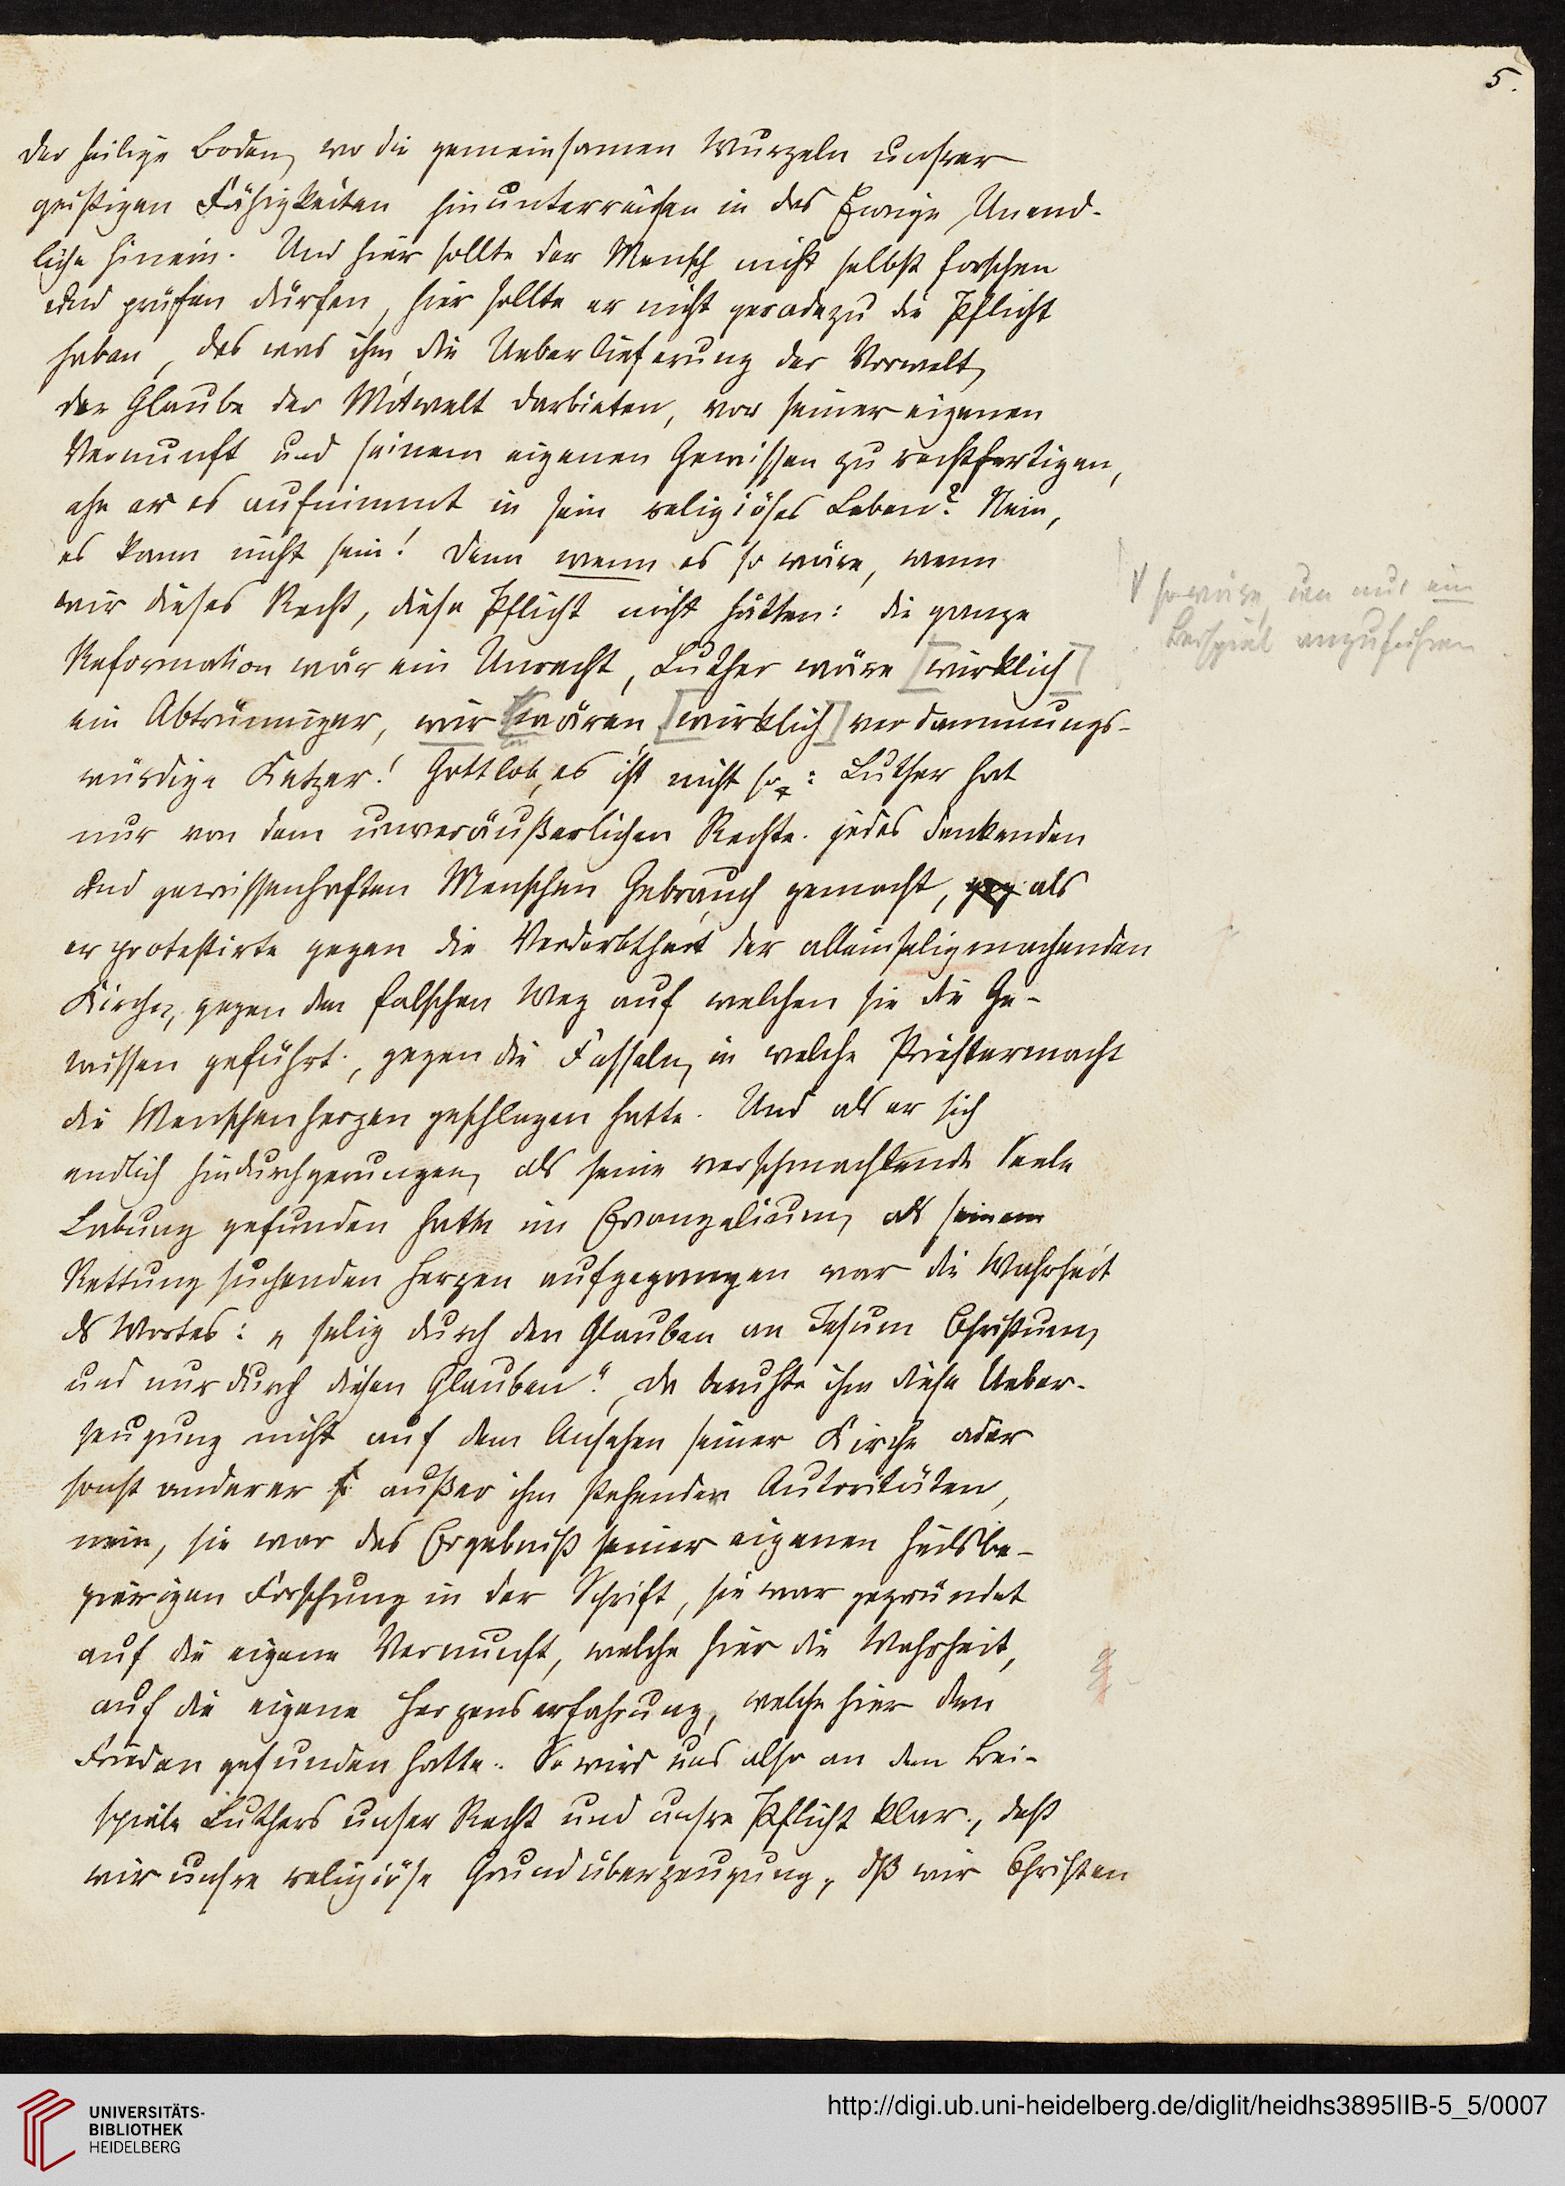 5.
der heilige Boden, wo die gemeinsamen Wurzeln unsrer
geistigen Fähigkeiten hinunterreichen in das Ewige, Unend-
liche hinein. Und hier sollte der Mensch nicht selbst forschen
und prüfen dürfen, hier sollte er nicht geradezu die Pflicht
haben, das was ihm die Ueberlieferung der Vorwelt,
der Glaube der Mitwelt darbieten, vor seiner eigenen
Vernunft und seinem eigenen Gewissen zu rechtfertigen,
ehe er es aufnimmt in sein religiöses Leben? Nein,
es kann nicht sein! Denn wenn es so wäre, wenn
wir dieses Recht, diese Pflicht nicht hätten: die ganze
so wäre, um nur ein
Beispiel anzuführen
Reformation wär ein Unrecht, Luther wäre [wirklich]
ein Abtrünniger, wir wären [wirklich] verdammungs-
würdige Ketzer! Gottlob, es ist nicht so: Luther hat
nur von dem unveräußerlichen Rechte jedes denkenden
und gewissenhaften Menschen Gebrauch gemacht, als
er protestirte gegen die Verderbtheit der alleinseligmachenden
Kirche, gegen den falschen Weg auf welchen sie die Ge-
wissen geführt, gegen die Fesseln, in welche Priestermacht
die Menschenherzen geschlagen hatte. Und als er sich
endlich hindurchgerungen, als seine verschmachtende Seele
Labung gefunden hatte im Evangelium, als seinem
Rettung suchenden Herzen aufgegangen war die Wahrheit
ds Wortes: „selig durch den Glauben an Jesum Christum,
und nur durch diesen Glauben“, da beruhte ihm diese Ueber-
zeugung nicht auf dem Ansehen seiner Kirche oder
sonst anderer außer ihm stehender Autoritäten,
nein, sie war das Ergebniß seiner eigenen heilsbe-
gierigen Forschung in der Schrift, sie war gegründet
auf die eigene Vernunft, welche hier die Wahrheit,
auf die eigene Herzenserfahrung, welche hier den
Frieden gefunden hatte. So wird uns also an dem Bei-
spiele Luthers unser Recht und unsre Pflicht klar, daß
wir unsre religiöse Grundüberzeugung, dß wir Christen
UNIVERSITÄTS-
BIBLIOTHEK
HEIDELBERG
http://digi.ub.uni-heidelberg.de/diglit/heidhs3895IIB-5_5/0007